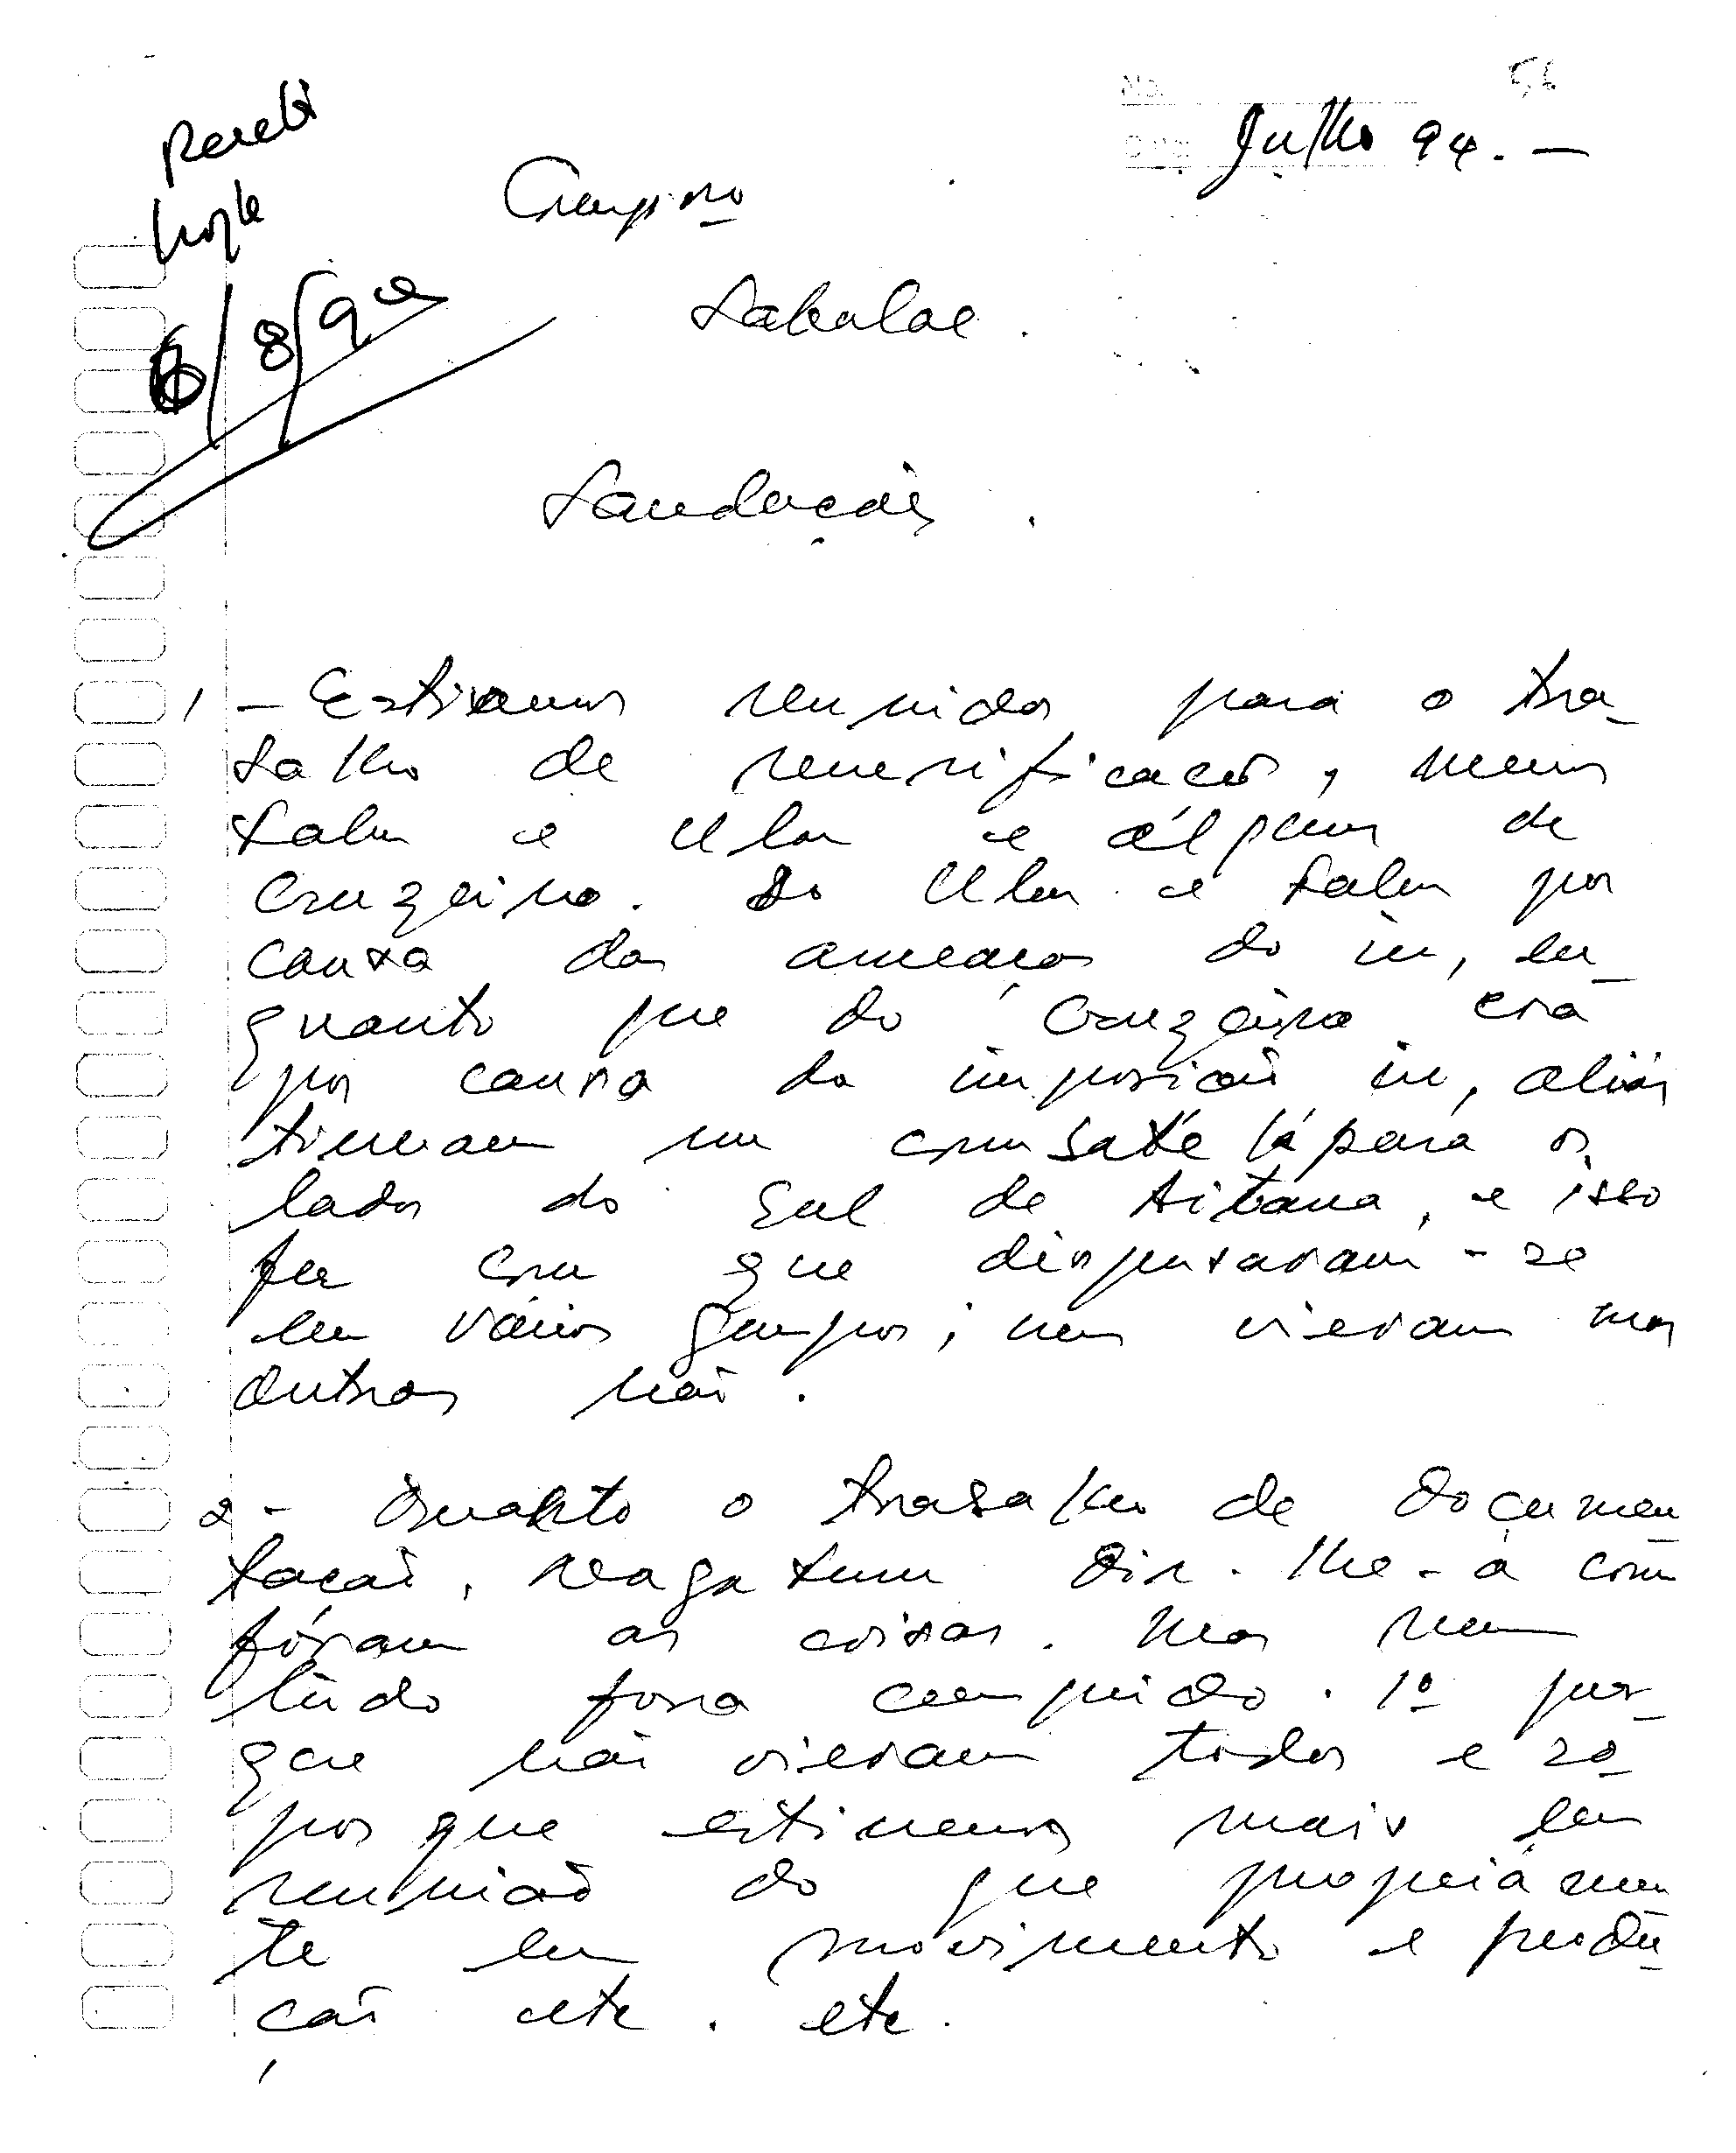 56
Julho 94. —
Recebi
hoje
6/8/94
Saudações.
1 - Estivemos reunidos para o tra-
balho de reunificação, menos
e Ulon e alguns de
Cruzeiro. Do Ulon e por
causa das ameaças do in, en-
quanto que do Cruzeiro era
por causa da imposição in, aliás
tiveram um combate lá para os
lados do Sul de Aitana, e isso
fez com que dispersaram-se
em vários grupos, uns vieram mas
outros não.
2 - Quanto o trabalho de documen
tação, dir-lhe-á com
fóram as coisas. Mas nem
tudo fora cumprido. 1º por-
que não vieram todos e 2º
porque estivemos mais em
reunião do que propriamen
te em movimento e produ
ção etc. etc.